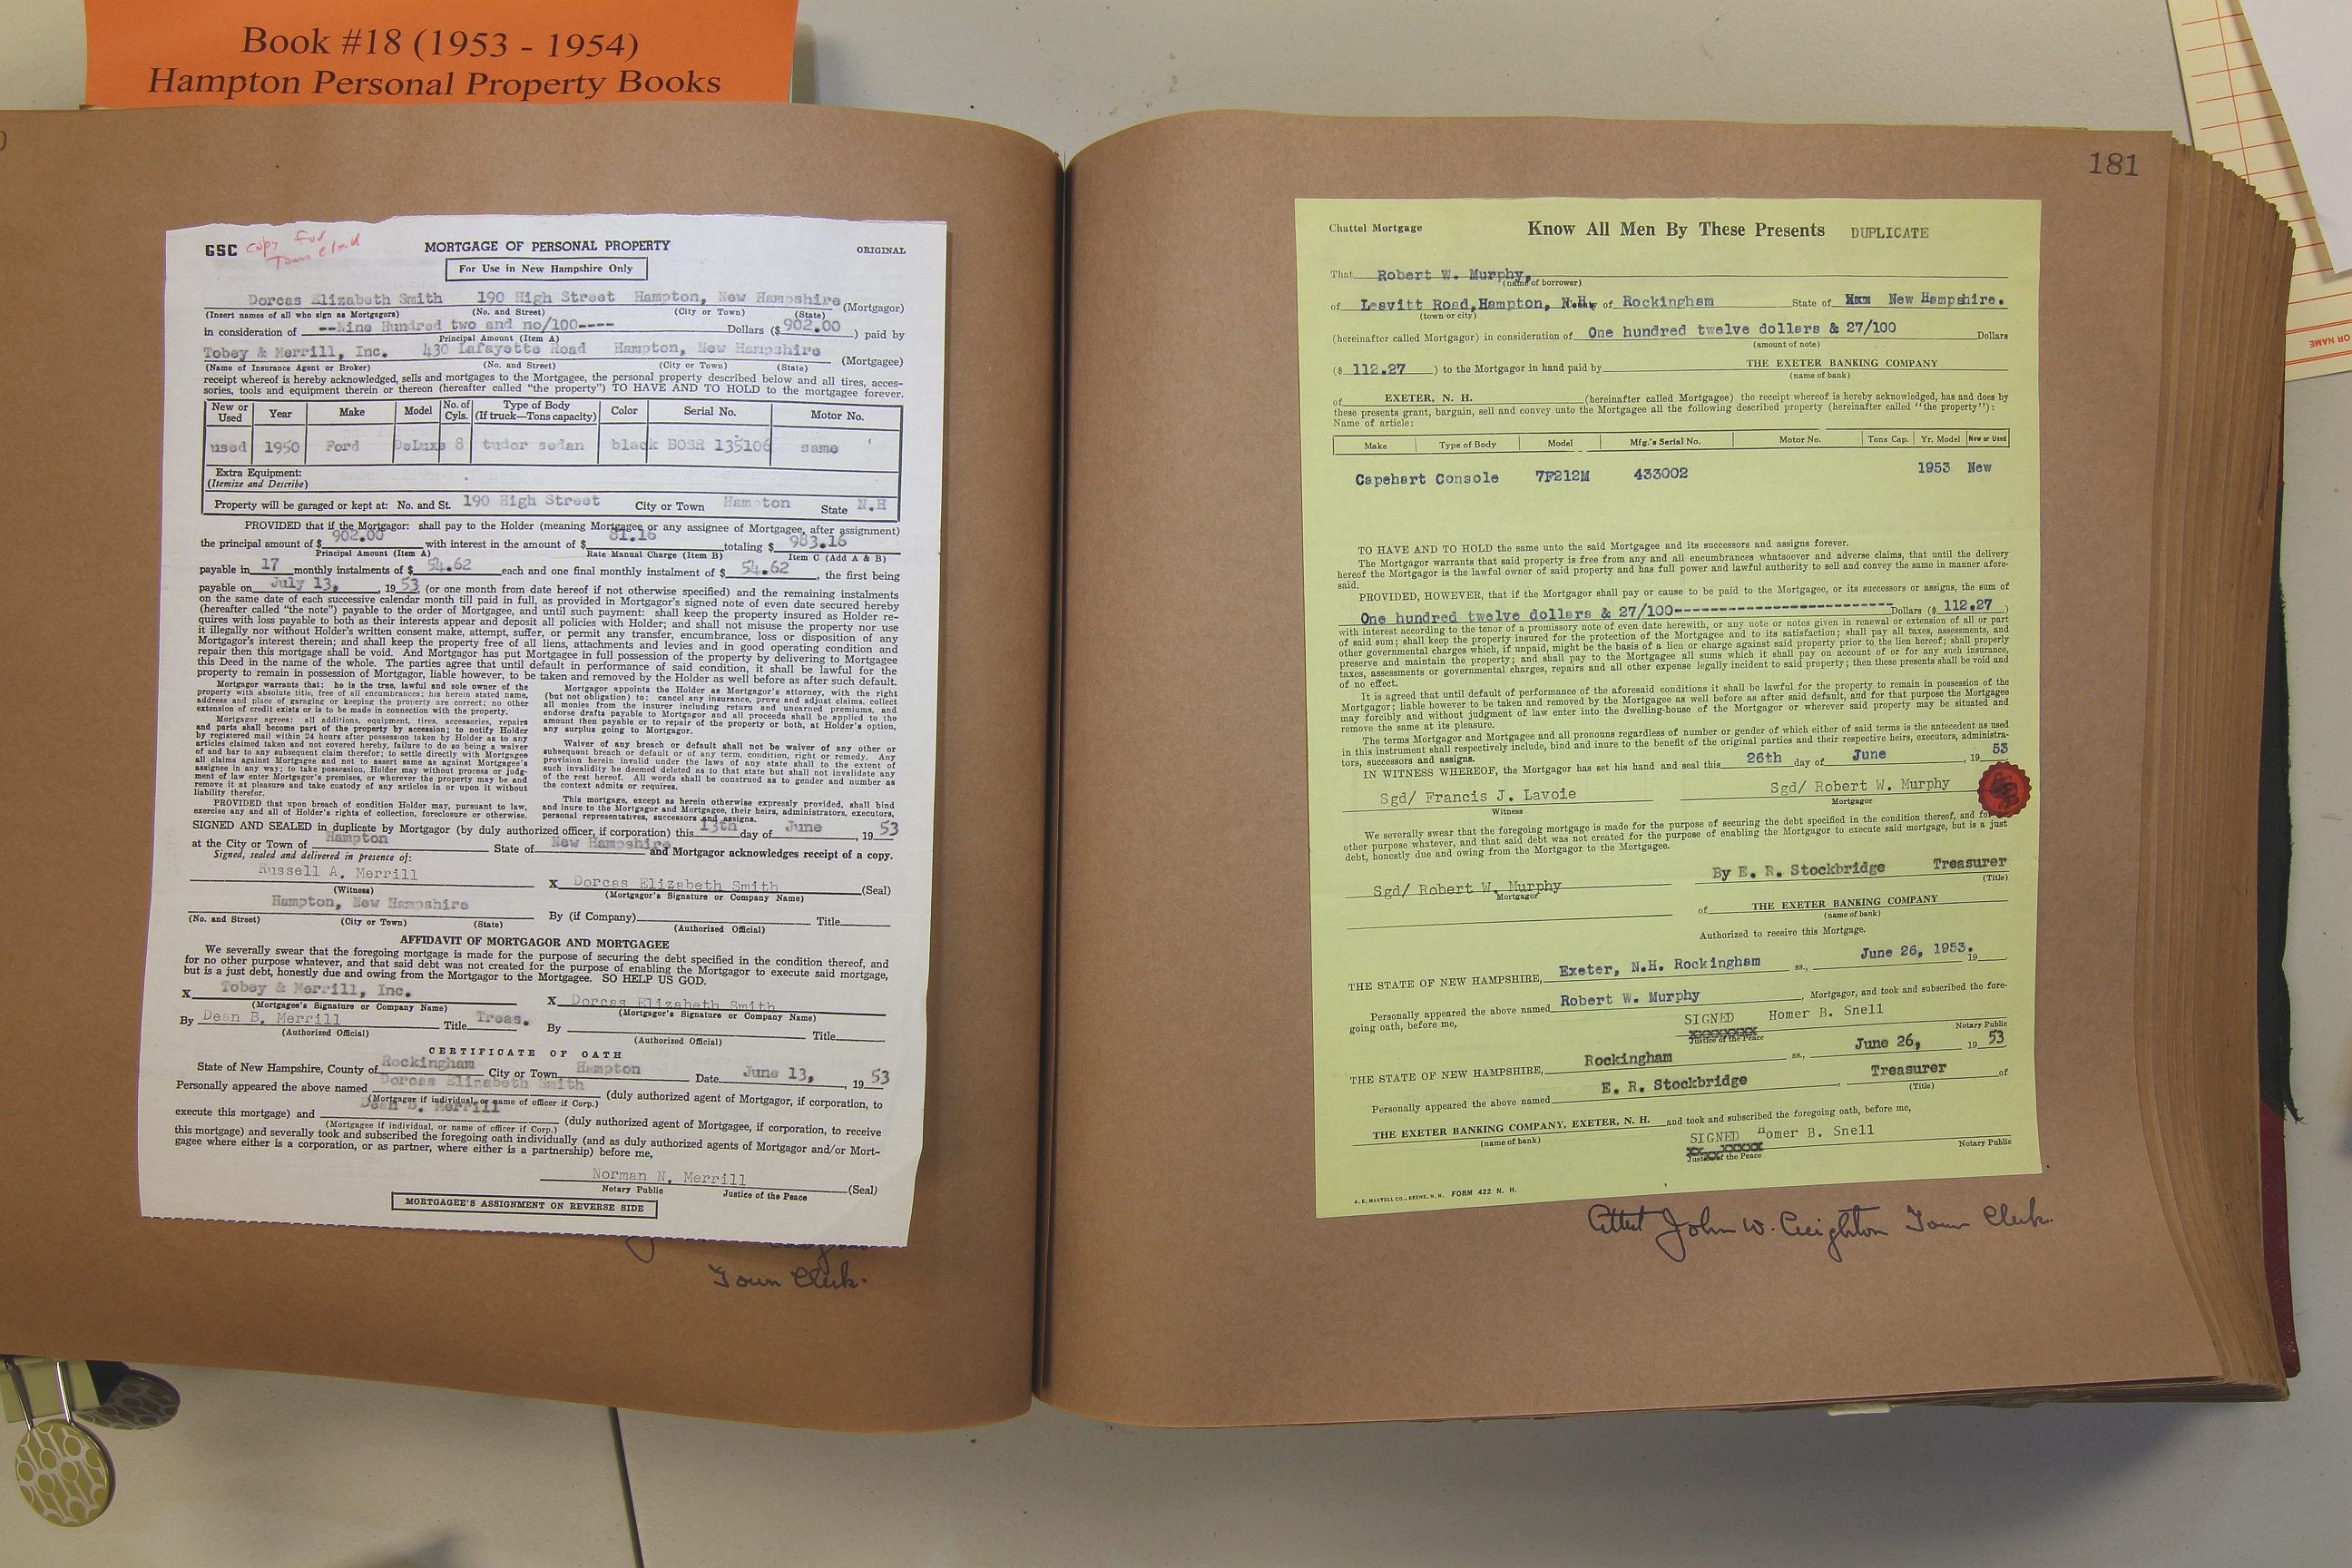 Book #18 (1953 - 1954)
Hampton Personal Property Books
GSC copy for Town Clerk
MORTGAGE OF PERSONAL PROPERTY
ORIGINAL
For Use in New Hampshire Only
Dorcas Elizabeth Smith 190 High Street Hampton, New Hampshire (Mortgagor)
(Insert names of all who sign as Mortgagors) (No. and Street) (City or Town) (State)
in consideration of --Nine Hundred two and no/100---- Dollars ($902.00) paid by
Principal Amount (Item A)
Tobey & Merrill, Inc. 430 Lafayette Road Hampton, New Hampshire (Mortgagee)
(Name of Insurance Agent or Broker) (No. and Street) (City or Town) (State)
receipt whereof is hereby acknowledged, sells and mortgages to the Mortgagee, the personal property described below and all tires, acces-
sories, tools and equipment therein or thereon (hereafter called "the property") TO HAVE AND TO HOLD to the mortgagee forever.
New or Used Year Make Model No. of Cyls. Type of Body (If truck—Tons capacity) Color Serial No. Motor No.
used 1950 Ford DeLuxe 8 tudor sedan black BOSR 135106 same
Extra Equipment:
(Itemize and Describe)
Property will be garaged or kept at: No. and St. 190 High Street City or Town Hampton State N.H
PROVIDED that if the Mortgagor: shall pay to the Holder (meaning Mortgagee or any assignee of Mortgagee, after assignment)
the principal amount of $902.00 with interest in the amount of $81.16 totaling $983.16
Principal Amount (Item A) Rate Manual Charge (Item B) Item C (Add A & B)
payable in 17 monthly instalments of $54.62 each and one final monthly instalment of $54.62, the first being
payable on July 13, 1953, (or one month from date hereof if not otherwise specified) and the remaining instalments
on the same date of each successive calendar month till paid in full, as provided in Mortgagor's signed note of even date secured hereby
(hereafter called "the note") payable to the order of Mortgagee, and until such payment: shall keep the property insured as Holder re-
quires with loss payable to both as their interests appear and deposit all policies with Holder; and shall not misuse the property nor use
it illegally nor without Holder's written consent make, attempt, suffer, or permit any transfer, encumbrance, loss or disposition of any
Mortgagor's interest therein; and shall keep the property free of all liens, attachments and levies and in good operating condition and
repair then this mortgage shall be void. And Mortgagor has put Mortgagee in full possession of the property by delivering to Mortgagee
this Deed in the name of the whole. The parties agree that until default in performance of said condition, it shall be lawful for the
property to remain in possession of Mortgagor, liable however, to be taken and removed by the Holder as well before as after such default.
Mortgagor warrants that: he is the true, lawful and sole owner of the
property with absolute title, free of all encumbrances; his herein stated name,
address and place of garaging or keeping the property are correct; no other
extension of credit exists or is to be made in connection with the property.
Mortgagor agrees: all additions, equipment, tires, accessories, repairs
and parts shall become part of the property by accession; to notify Holder
by registered mail within 24 hours after possession taken by Holder as to any
articles claimed taken and not covered hereby, failure to do so being a waiver
of and bar to any subsequent claim therefor; to settle directly with Mortgagee
all claims against Mortgagee and not to assert same as against Mortgagee's
assignee in any way; to take possession, Holder may without process or judg-
ment of law enter Mortgagor's premises, or wherever the property may be and
remove it at pleasure and take custody of any articles in or upon it without
liability therefor.
PROVIDED that upon breach of condition Holder may, pursuant to law,
exercise any and all of Holder's rights of collection, foreclosure or otherwise.
Mortgagor appoints the Holder as Mortgagor's attorney, with the right
(but not obligation) to: cancel any insurance, prove and adjust claims, collect
all monies from the insurer including return and unearned premiums, and
endorse drafts payable to Mortgagor and all proceeds shall be applied to the
amount then payable or to repair of the property or both, at Holder's option,
any surplus going to Mortgagor.
Waiver of any breach or default shall not be waiver of any other or
subsequent breach or default or of any term, condition, right or remedy. Any
provision herein invalid under the laws of any state shall to the extent of
such invalidity be deemed deleted as to that state but shall not invalidate any
of the rest hereof. All words shall be construed as to gender and number as
the context admits or requires.
This mortgage, except as herein otherwise expressly provided, shall bind
and inure to the Mortgagor and Mortgagee, their heirs, administrators, executors,
personal representatives, successors and assigns.
SIGNED AND SEALED in duplicate by Mortgagor (by duly authorized officer, if corporation) this 13th day of June, 1953
at the City or Town of Hampton State of New Hampshire and Mortgagor acknowledges receipt of a copy.
Signed, sealed and delivered in presence of:
Russell A. Merrill X Dorcas Elizabeth Smith (Seal)
(Witness) (Mortgagor's Signature or Company Name)
Hampton, New Hampshire By (if Company) Title
(No. and Street) (City or Town) (State) (Authorized Official)
AFFIDAVIT OF MORTGAGOR AND MORTGAGEE
We severally swear that the foregoing mortgage is made for the purpose of securing the debt specified in the condition thereof, and
for no other purpose whatever, and that said debt was not created for the purpose of enabling the Mortgagor to execute said mortgage,
but is a just debt, honestly due and owing from the Mortgagor to the Mortgagee. SO HELP US GOD.
X Tobey & Merrill, Inc. X Dorcas Elizabeth Smith
(Mortgagee's Signature or Company Name) (Mortgagor's Signature or Company Name)
By Dean B. Merrill Title Treas. By Title
(Authorized Official) (Authorized Official)
CERTIFICATE OF OATH
State of New Hampshire, County of Rockingham City or Town Hampton Date June 13, 1953
Personally appeared the above named Dorcas Elizabeth Smith (duly authorized agent of Mortgagor, if corporation, to
(Mortgagor if individual, or name of officer if Corp.)
execute this mortgage) and Dean B. Merrill (duly authorized agent of Mortgagee, if corporation, to receive
(Mortgagee if individual, or name of officer if Corp.)
this mortgage) and severally took and subscribed the foregoing oath individually (and as duly authorized agents of Mortgagor and/or Mort-
gagee where either is a corporation, or as partner, where either is a partnership) before me,
Norman N. Merrill (Seal)
Notary Public Justice of the Peace
MORTGAGEE'S ASSIGNMENT ON REVERSE SIDE
Town Clerk.
181
Chattel Mortgage Know All Men By These Presents DUPLICATE
That Robert W. Murphy,
(name of borrower)
of Leavitt Road, Hampton, N.H. of Rockingham State of New Hampshire.
(town or city)
(hereinafter called Mortgagor) in consideration of One hundred twelve dollars & 27/100 Dollars
(amount of note)
($ 112.27) to the Mortgagor in hand paid by THE EXETER BANKING COMPANY
(name of bank)
of EXETER, N. H. (hereinafter called Mortgagee) the receipt whereof is hereby acknowledged, has and does by
these presents grant, bargain, sell and convey unto the Mortgagee all the following described property (hereinafter called "the property"):
Name of article:
Make Type of Body Model Mfg.'s Serial No. Motor No. Tons Cap. Yr. Model New or Used
Capehart Console 7F212M 433002 1953 New
TO HAVE AND TO HOLD the same unto the said Mortgagee and its successors and assigns forever.
The Mortgagor warrants that said property is free from any and all encumbrances whatsoever and adverse claims, that until the delivery
hereof the Mortgagor is the lawful owner of said property and has full power and lawful authority to sell and convey the same in manner afore-
said.
PROVIDED, HOWEVER, that if the Mortgagor shall pay or cause to be paid to the Mortgagee, or its successors or assigns, the sum of
One hundred twelve dollars & 27/100------------------------Dollars ($ 112.27)
with interest according to the tenor of a promissory note of even date herewith, or any note or notes given in renewal or extension of all or part
of said sum; shall keep the property insured for the protection of the Mortgagee and to its satisfaction; shall pay all taxes, assessments, and
other governmental charges which, if unpaid, might be the basis of a lien or charge against said property prior to the lien hereof; shall properly
preserve and maintain the property; and shall pay to the Mortgagee all sums which it shall pay on account of or for any such insurance,
taxes, assessments or governmental charges, repairs and all other expense legally incident to said property; then these presents shall be void and
of no effect.
It is agreed that until default of performance of the aforesaid conditions it shall be lawful for the property to remain in possession of the
Mortgagor; liable however to be taken and removed by the Mortgagee as well before as after said default, and for that purpose the Mortgagee
may forcibly and without judgment of law enter into the dwelling-house of the Mortgagor or wherever said property may be situated and
remove the same at its pleasure.
The terms Mortgagor and Mortgagee and all pronouns regardless of number or gender of which either of said terms is the antecedent as used
in this instrument shall respectively include, bind and inure to the benefit of the original parties and their respective heirs, executors, administra-
tors, successors and assigns.
IN WITNESS WHEREOF, the Mortgagor has set his hand and seal this 26th day of June, 1953
Sgd/ Francis J. Lavoie Sgd/ Robert W. Murphy
Witness Mortgagor
We severally swear that the foregoing mortgage is made for the purpose of securing the debt specified in the condition thereof, and for no
other purpose whatever, and that said debt was not created for the purpose of enabling the Mortgagor to execute said mortgage, but is a just
debt, honestly due and owing from the Mortgagor to the Mortgagee.
Sgd/ Robert W. Murphy By E. R. Stockbridge Treasurer
Mortgagor (Title)
of THE EXETER BANKING COMPANY
(name of bank)
Authorized to receive this Mortgage.
THE STATE OF NEW HAMPSHIRE, Exeter, N.H. Rockingham ss., June 26, 1953. 19
Personally appeared the above named Robert W. Murphy, Mortgagor, and took and subscribed the fore-
going oath, before me,
SIGNED Homer B. Snell
Justice of the Peace Notary Public
THE STATE OF NEW HAMPSHIRE, Rockingham ss., June 26, 1953
Personally appeared the above named E. R. Stockbridge, Treasurer of
(Title)
THE EXETER BANKING COMPANY, EXETER, N. H. and took and subscribed the foregoing oath, before me,
(name of bank)
SIGNED Homer B. Snell
Justice of the Peace Notary Public
A. E. MARTELL CO., KEENE, N. H. FORM 422 N. H.
Attest John W. Creighton Town Clerk.